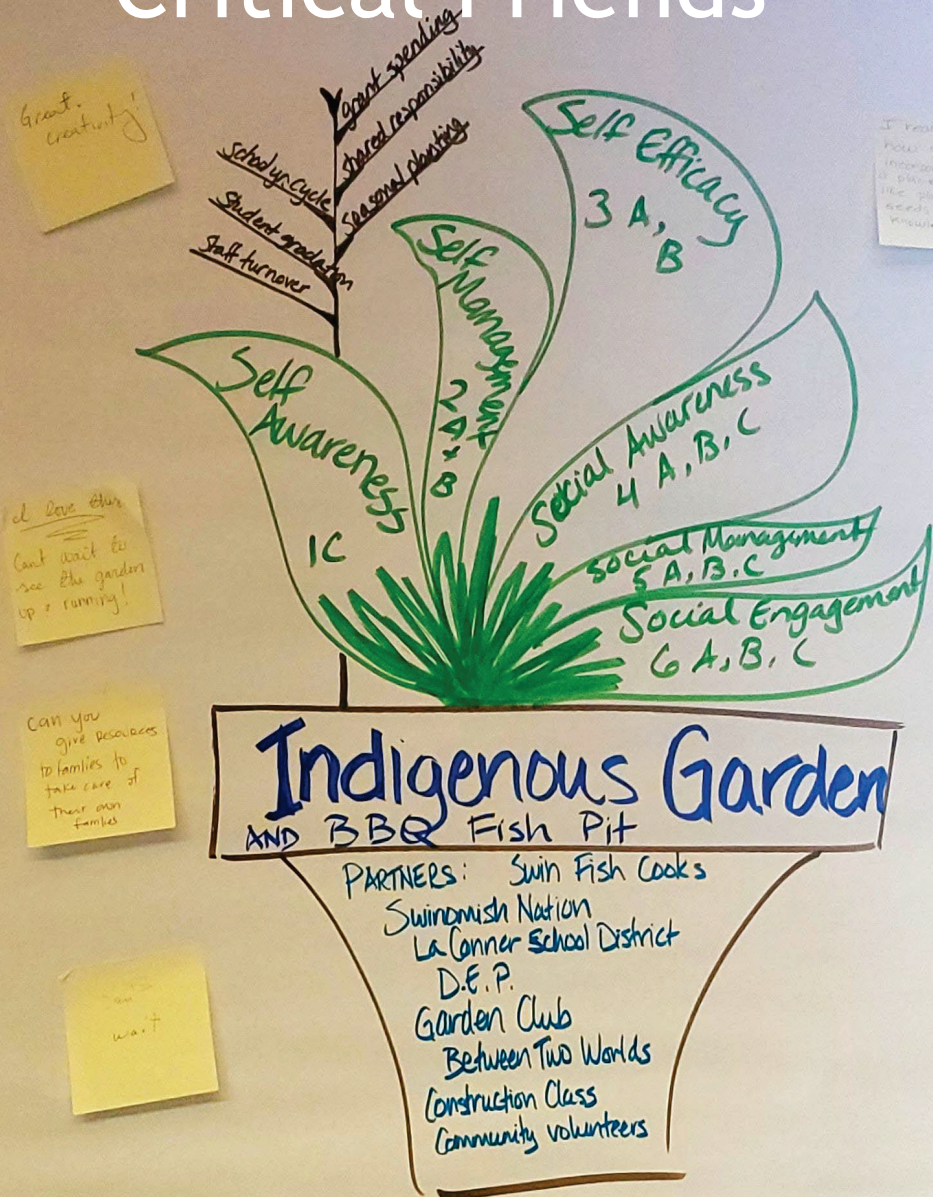 Critical Friends
Great
creativity!
grant spending
shared responsibility
seasonal planting
School yr. cycle
Student gradation
Staff turnover
Self Efficacy
3 A,
B
Self
Management
2
A
+
B
Self
Awareness
1C
Social Awareness
4 A, B, C
Social Management
5 A, B, C
Social Engagement
6 A, B, C
I love this
Can't wait to
see the garden
up & running!
Can you
give Resources
to families to
take care of
their own
families
wait
Indigenous Garden
AND BBQ Fish Pit
PARTNERS: Swin Fish Cooks
Swinomish Nation
La Conner School District
D.E.P.
Garden Club
Between Two Worlds
Construction Class
Community volunteers